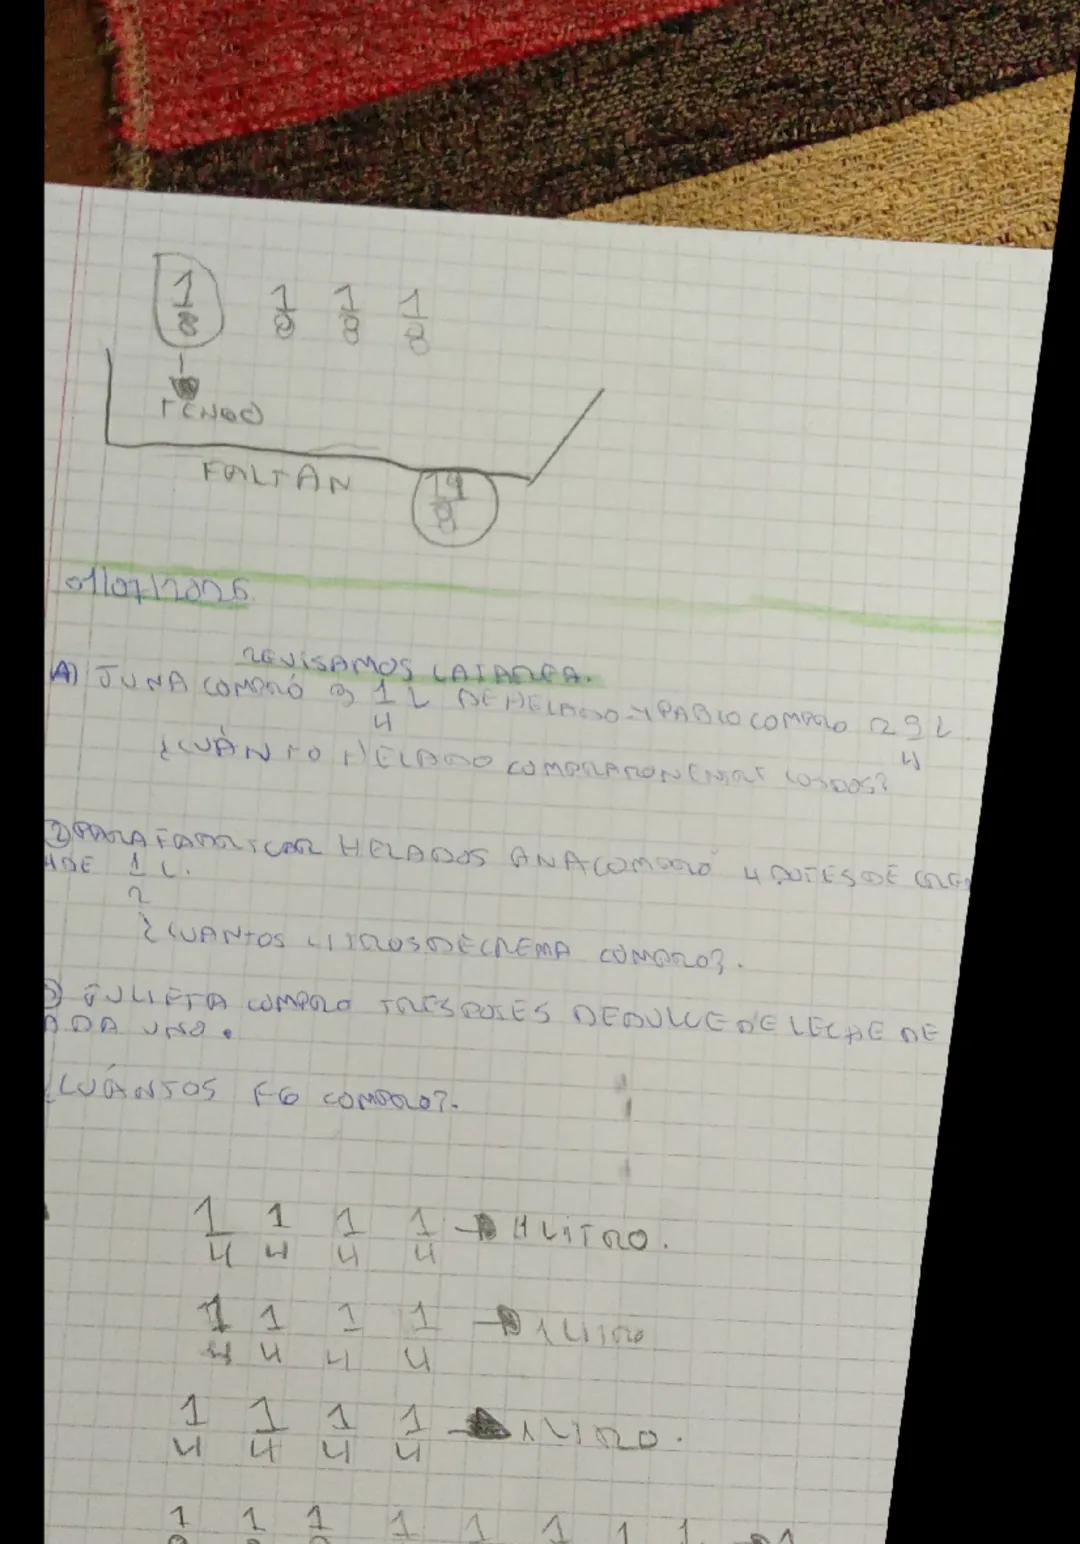 1/8 1/8 1/8 1/8
TENGO
FALTAN 19/8
01/07/2026
REVISAMOS LA TAREA.
A) JUNA COMPRÓ 3 1/4 L DE HELADO Y PABLO COMPRO 2 3/4 L.
¿CUÁNTO HELADO COMPRARON ENTRE LOS DOS?
2) PARA FABRICAR HELADOS ANA COMPRÓ 4 POTES DE CREM
A DE 1/2 L.
¿CUANTOS LITROS DE CREMA COMPRO?.
3) JULIETA COMPRO TRES POTES DE DULCE DE LECHE DE
ADA UNO.
¿CUÁNTOS KG COMPRO?.
1/4 1/4 1/4 1/4 → 1 LITRO.
1/4 1/4 1/4 1/4 → 1 LITRO
1/4 1/4 1/4 1/4 → 1 LITRO.